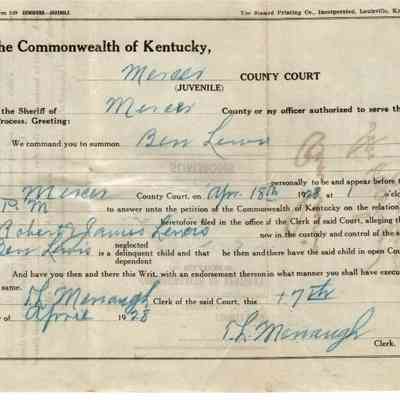 rm 549 SUMMONS—JUVENILE. The Standard Printing Co., Incorporated, Louisville, K
he Commonwealth of Kentucky,
Mercer COUNTY COURT
(JUVENILE)
the Sheriff of Mercer County or any officer authorized to serve th
Process, Greeting:
We command you to summon Ben Lewis
personally to be and appear before t
Mercer County Court, on Apr. 18th 1928 at 1 o'c
P.M. to answer unto the petition of the Commonwealth of Kentucky on the relation
heretofore filed in the office of the Clerk of said Court, alleging th
Robert James Lewis now in the custody and control of the s
Ben Lewis is a neglected delinquent dependent child and that he then and there have the said child in open Cou
And have you then and there this Writ, with an endorsement thereon in what manner you shall have execu
same.
T.L. Menaugh Clerk of the said Court, this 17th
y of April 1928
T.L. Menaugh
Clerk.